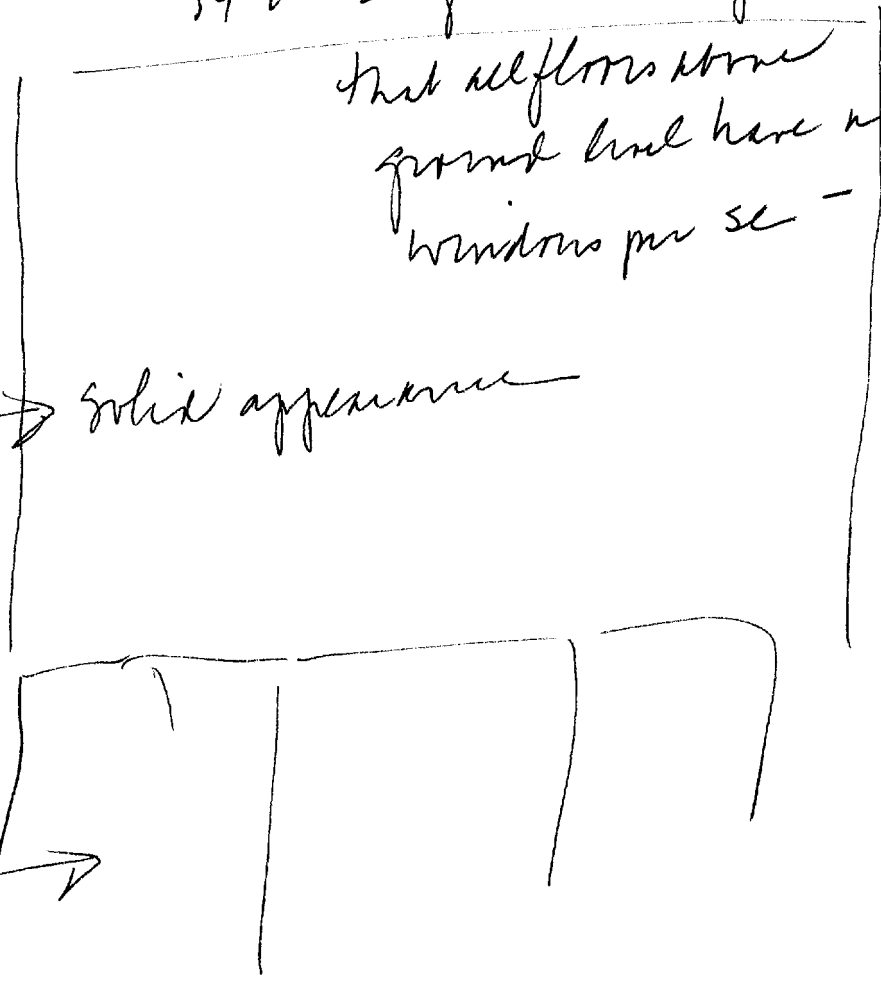 that all floors above
ground level have n
windows per se -
solid appearance